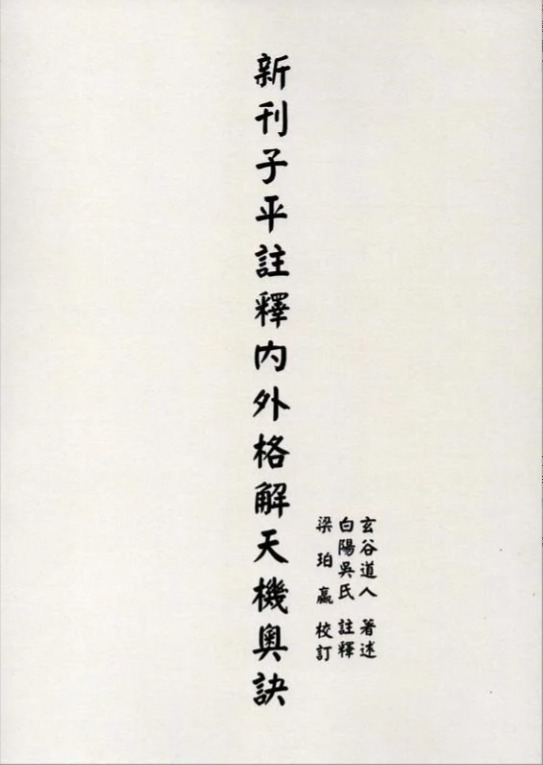 新刊子平註釋內外格解天機奧訣
玄谷道人 著述
白陽吳氏 註釋
梁珀嬴 校訂